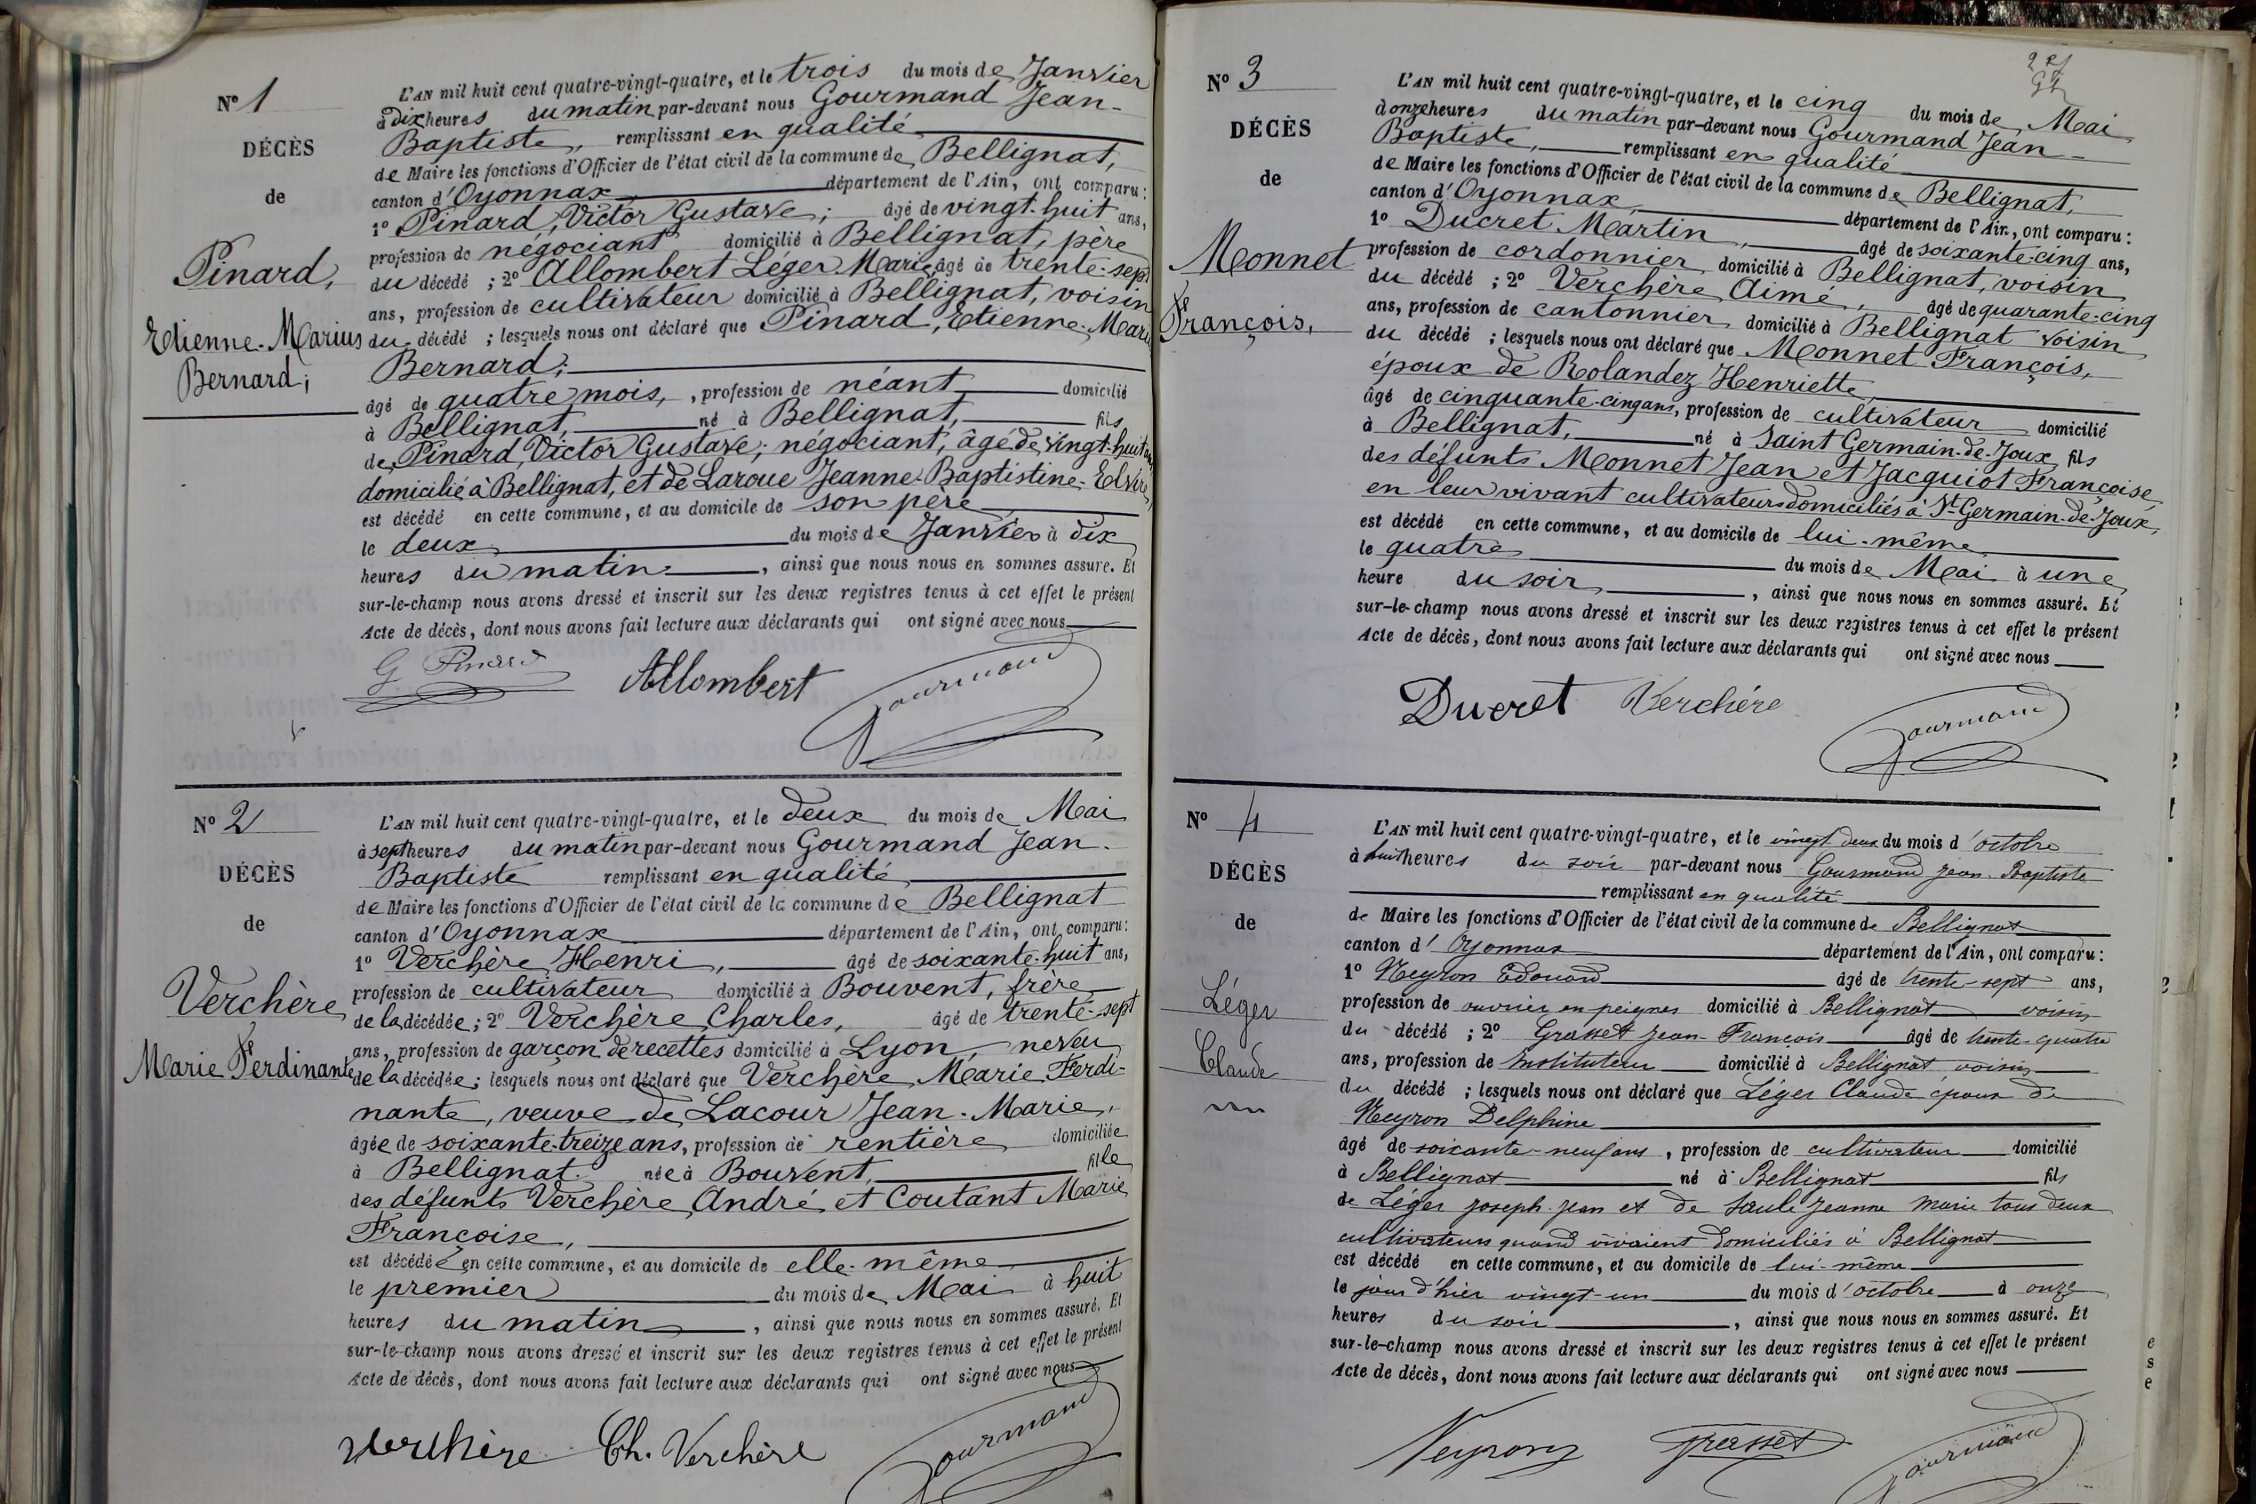 N° 1
DÉCÈS
de
Pinard,
Etienne-Marius
Bernard;
L'AN mil huit cent quatre-vingt-quatre, et le trois du mois de Janvier
à dix heures du matin par-devant nous Gourmand Jean-
Baptiste, remplissant en qualité
de Maire les fonctions d'Officier de l'état civil de la commune de Bellignat,
canton d'Oyonnax département de l'Ain, ont comparu :
1° Pinard, Victor Gustave; âgé de vingt-huit ans,
profession de négociant domicilié à Bellignat, père
du décédé ; 2° Allombert Léger Marie, âgé de trente-sept
ans, profession de cultivateur domicilié à Bellignat, voisin
du décédé ; lesquels nous ont déclaré que Pinard, Etienne-Marius
Bernard;
âgé de quatre mois, , profession de néant domicilié
à Bellignat, né à Bellignat, fils
de Pinard, Victor Gustave; négociant, âgé de vingt-huit ans
domicilié à Bellignat, et de Laroue Jeanne-Baptistine-Elvire,
est décédé en cette commune, et au domicile de son père
le deux du mois de Janvier à dix
heures du matin , ainsi que nous nous en sommes assuré. Et
sur-le-champ nous avons dressé et inscrit sur les deux registres tenus à cet effet le présent
Acte de décès, dont nous avons fait lecture aux déclarants qui ont signé avec nous
G. Pinard Allombert Gourmand
N° 2
DÉCÈS
de
Verchère
Marie Ferdinante
L'AN mil huit cent quatre-vingt-quatre, et le deux du mois de Mai
à sept heures du matin par-devant nous Gourmand Jean-
Baptiste remplissant en qualité
de Maire les fonctions d'Officier de l'état civil de la commune de Bellignat
canton d'Oyonnax département de l'Ain, ont comparu :
1° Verchère Henri, âgé de soixante-huit ans,
profession de cultivateur domicilié à Bouvent, frère
de la décédée ; 2° Verchère Charles, âgé de trente-sept
ans, profession de garçon de recettes domicilié à Lyon, neveu
de la décédée ; lesquels nous ont déclaré que Verchère Marie Ferdi-
nante, veuve de Lacour Jean-Marie,
âgée de soixante-treize ans, profession de rentière domiciliée
à Bellignat née à Bouvent, fille
des défunts Verchère André et Coutant Marie
Françoise,
est décédée en cette commune, et au domicile de elle-même
le premier du mois de Mai à huit
heures du matin , ainsi que nous nous en sommes assuré. Et
sur-le-champ nous avons dressé et inscrit sur les deux registres tenus à cet effet le présent
Acte de décès, dont nous avons fait lecture aux déclarants qui ont signé avec nous
Verchère Ch. Verchère Gourmand
N° 3
DÉCÈS
de
Monnet
François,
L'AN mil huit cent quatre-vingt-quatre, et le cinq du mois de Mai
à onze heures du matin par-devant nous Gourmand Jean-
Baptiste, remplissant en qualité
de Maire les fonctions d'Officier de l'état civil de la commune de Bellignat,
canton d'Oyonnax, département de l'Ain, ont comparu :
1° Ducret Martin, âgé de soixante-cinq ans,
profession de cordonnier domicilié à Bellignat, voisin
du décédé ; 2° Verchère Aimé, âgé de quarante-cinq
ans, profession de cantonnier domicilié à Bellignat voisin
du décédé ; lesquels nous ont déclaré que Monnet François,
époux de Rolandez Henriette,
âgé de cinquante-cinq ans, profession de cultivateur domicilié
à Bellignat, né à Saint Germain-de-Joux, fils
des défunts Monnet Jean et Jacquiot Françoise
en leur vivant cultivateurs domiciliés à St Germain-de-Joux,
est décédé en cette commune, et au domicile de lui-même
le quatre du mois de Mai à une
heure du soir , ainsi que nous nous en sommes assuré. Et
sur-le-champ nous avons dressé et inscrit sur les deux registres tenus à cet effet le présent
Acte de décès, dont nous avons fait lecture aux déclarants qui ont signé avec nous
Ducret Verchère Gourmand
N° 4
DÉCÈS
de
Léger
Claude
L'AN mil huit cent quatre-vingt-quatre, et le vingt deux du mois d'octobre
à huit heures du soir par-devant nous Gourmand Jean-Baptiste
remplissant en qualité
de Maire les fonctions d'Officier de l'état civil de la commune de Bellignat
canton d'Oyonnax département de l'Ain, ont comparu :
1° Neyron Edouard âgé de trente-sept ans,
profession de ouvrier en peignes domicilié à Bellignat voisin
du décédé ; 2° Grasset Jean-François âgé de trente-quatre
ans, profession de Instituteur domicilié à Bellignat voisin
du décédé ; lesquels nous ont déclaré que Léger Claude époux de
Neyron Delphine
âgé de soixante-neuf ans , profession de cultivateur domicilié
à Bellignat né à Bellignat fils
de Léger Joseph Jean et de Saule Jeanne Marie tous deux
cultivateurs quand vivaient domiciliés à Bellignat
est décédé en cette commune, et au domicile de lui-même
le jour d'hier vingt-un du mois d'octobre à onze
heures du soir , ainsi que nous nous en sommes assuré. Et
sur-le-champ nous avons dressé et inscrit sur les deux registres tenus à cet effet le présent
Acte de décès, dont nous avons fait lecture aux déclarants qui ont signé avec nous
Neyron Grasset Gourmand